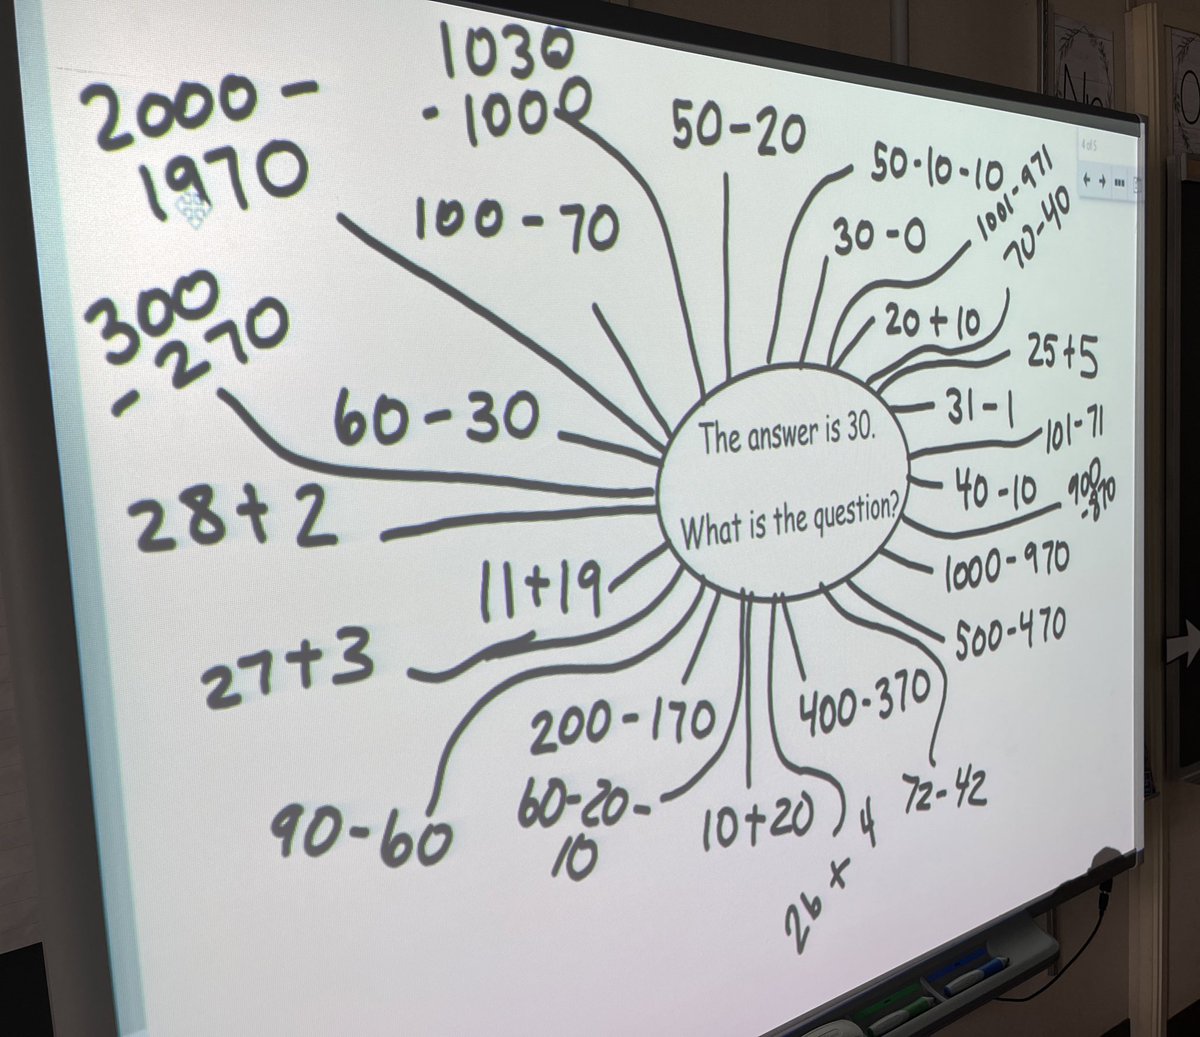 1030
-1000
2000 -
1970
50-20
50-10-10
1001-971
70-40
4 of 5
100-70
30-0
20+10
300
-270
25+5
60-30
31-1
101-71
The answer is 30.
What is the question?
40-10
900
-870
28+2
1000-970
11+19
500-470
27+3
200-170
400-370
90-60
60-20-
10
10+20
72-42
26 + 4